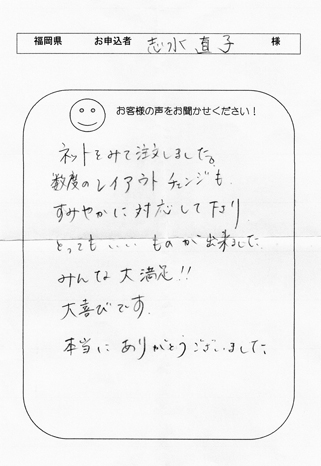 福岡県 お申込者 志水 直子 様
お客様の声をお聞かせください！
ネットをみて注文しました。
数度のレイアウトチェンジも
すみやかに対応して下さり
とってもいいものが出来ました
みんな大満足!!
大喜びです.
本当にありがとうございました。